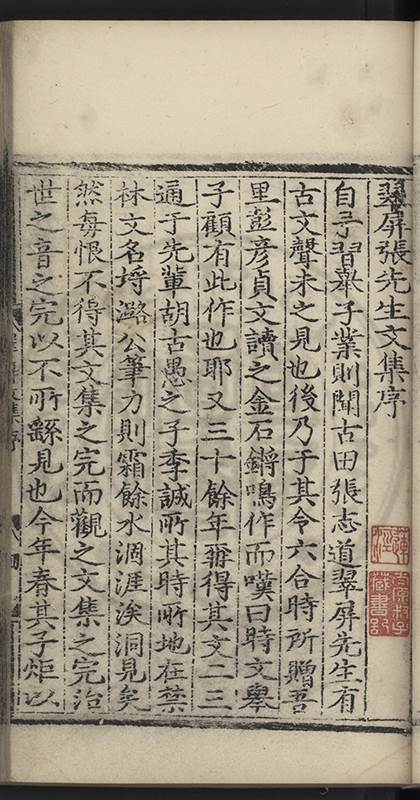 翠屏張先生文集序
自予習舉子業則聞古田張志道翠屏先生有
古文聲未之見也後乃于其令六合時所贈吾
里彭彦貞文讀之金石鏘鳴作而嘆曰時文舉
子顧有此作也耶又三十餘年乃得其文二三
通于先輩胡古愚之子季誠所其時所地在禁
林文名埒潞公筆力則霜餘水涸涯涘洞見矣
然每恨不得其文集之完而觀之文集之完治
世之音之完以不所繇見也今年春其子炬以
藏書記